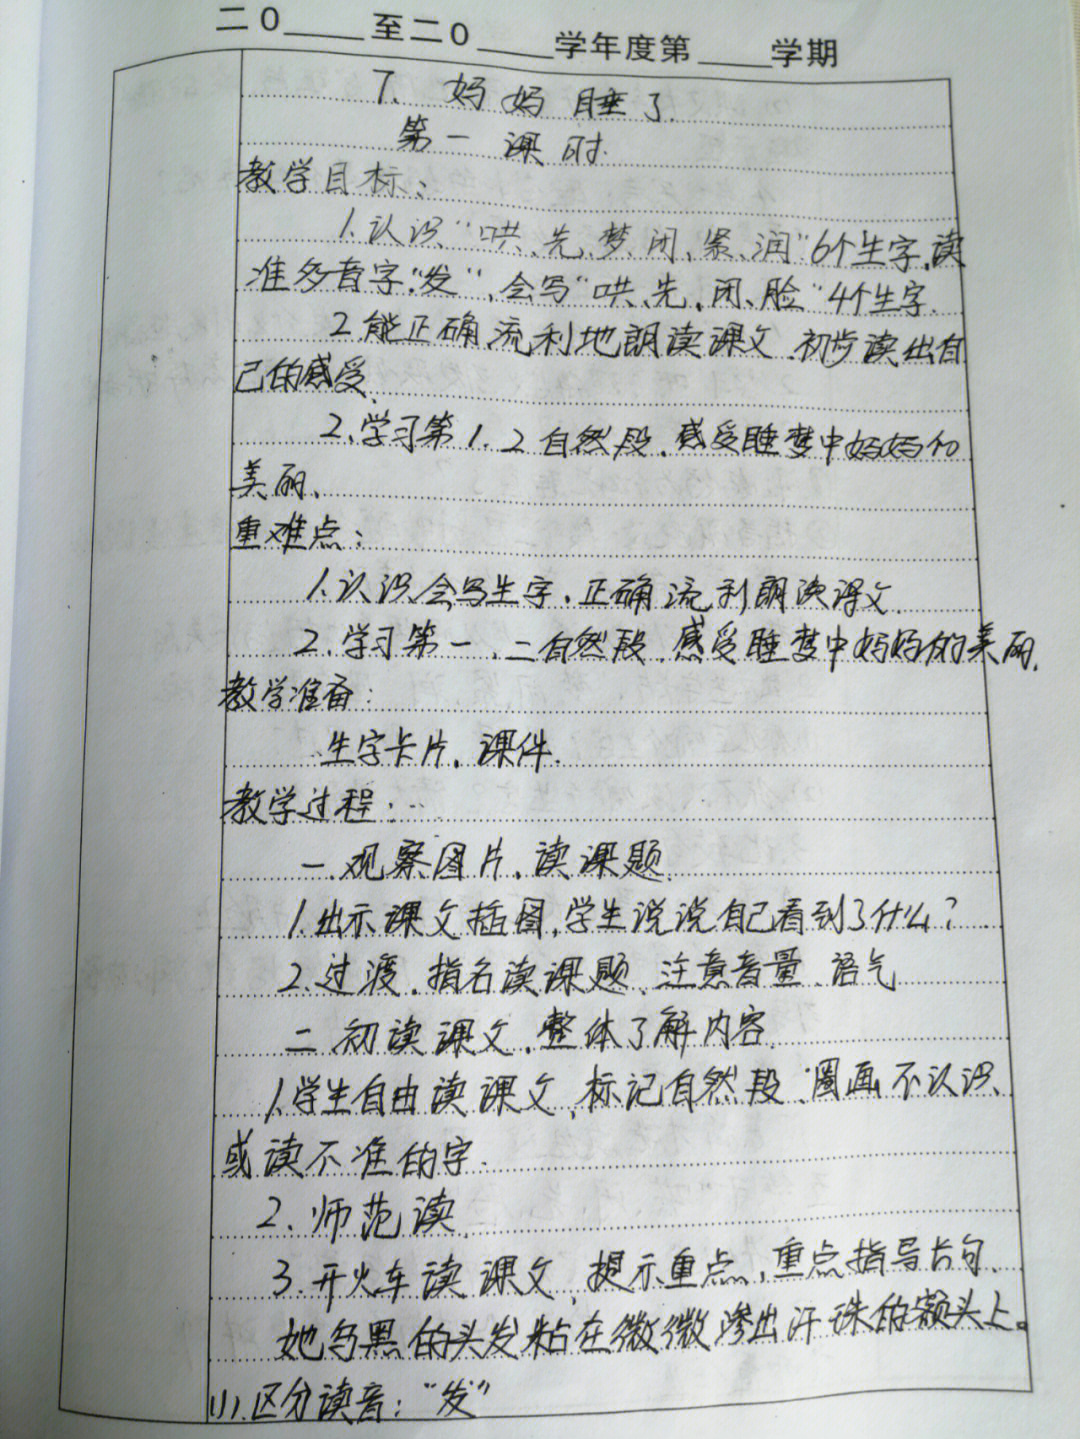 二0____至二0____学年度第____学期
7. 妈妈睡了.
第一课时.
教学目标:
1.认识"哄、先、梦、闭、紧、润"6个生字,读
准多音字"发",会写"哄、先、闭、脸"4个生字.
2.能正确流利地朗读课文.初步读出自
己的感受.
2.学习第1.2自然段.感受睡梦中妈妈的
美丽.
重难点:
1.认识会写生字.正确流利朗读课文.
2.学习第一.二自然段.感受睡梦中妈妈的美丽.
教学准备:
生字卡片.课件.
教学过程:
一.观察图片.读课题.
1.出示课文插图,学生说说自己看到了什么?
2.过渡.指名读课题.注意音量.语气
二.初读课文.整体了解内容.
1.学生自由读课文,标记自然段.圈画不认识、
或读不准的字.
2.师范读.
3.开火车读课文,提示重点,重点指导长句.
她乌黑的头发粘在微微渗出汗珠的额头上。
(1).区分读音:"发"